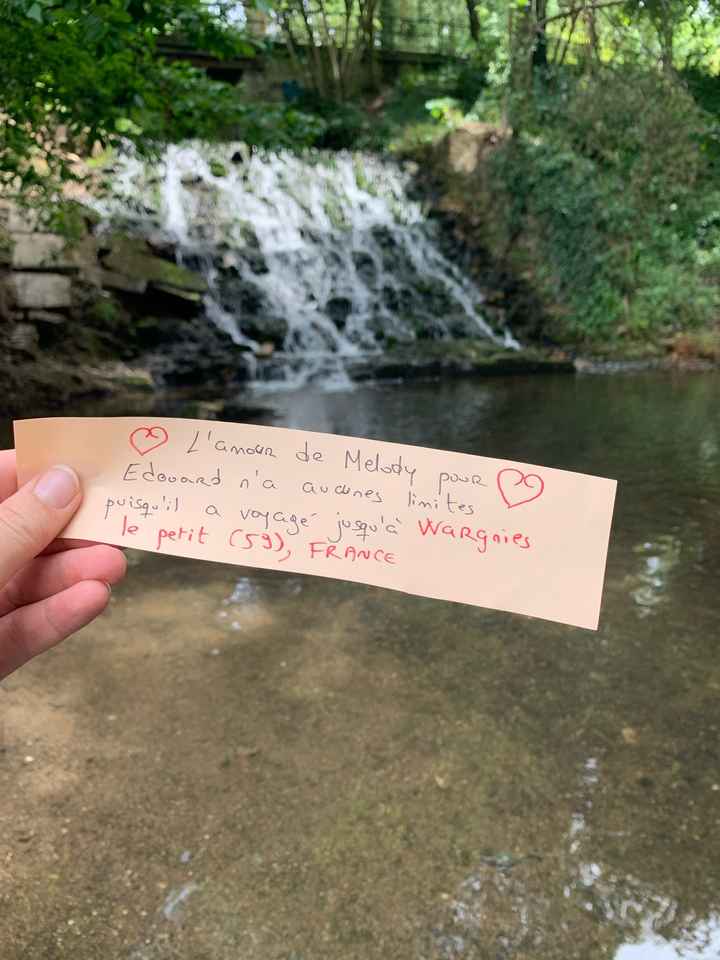 L'amour de Melody pour
Edouard n'a aucunes limites
puisqu'il a voyagé jusqu'à Wargnies
le petit (59), FRANCE